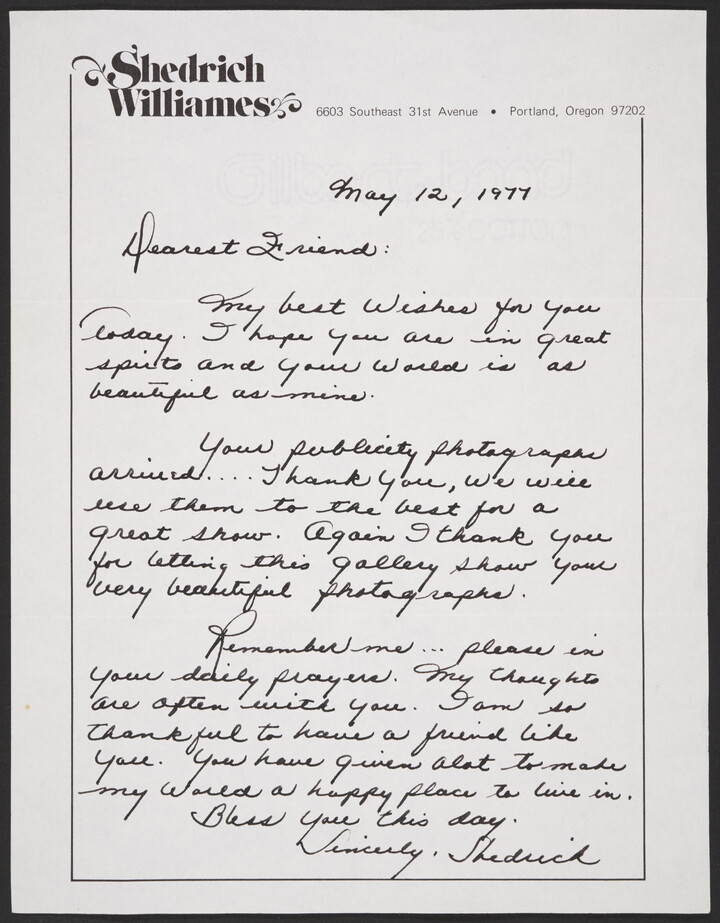 Shedrich
Williames
6603 Southeast 31st Avenue • Portland, Oregon 97202
May 12, 1977
Dearest Friend:
My best Wishes for you
today. I hope you are in great
spirits and your world is as
beautiful as mine.
Your publicity photographs
arrived.... Thank you, we will
use them to the best for a
great show. Again I thank you
for letting this gallery show your
very beautiful photographs.
Remember me... please in
your daily prayers. My thoughts
are often with you. I am so
thankful to have a friend like
you. You have given alot to make
my world a happy place to live in.
Bless you this day.
Sincerly. Shedrich